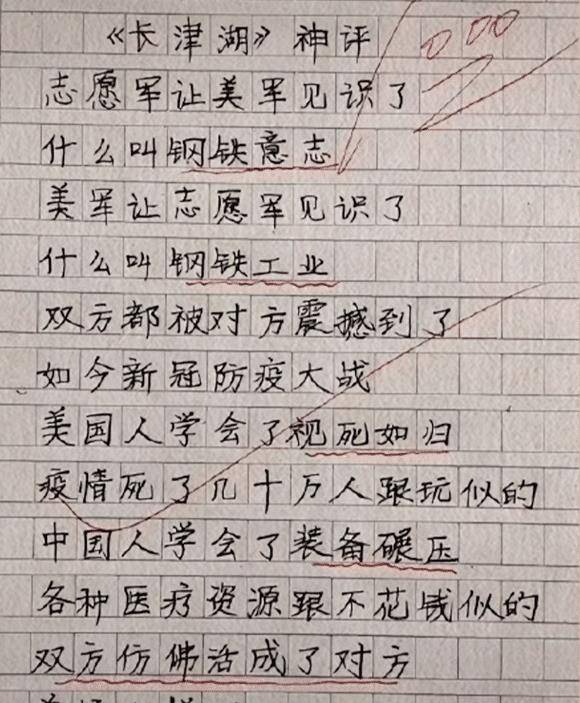 《长津湖》神评
志愿军让美军见识了
什么叫钢铁意志
美军让志愿军见识了
什么叫钢铁工业
双方都被对方震撼到了
如今新冠防疫大战
美国人学会了视死如归
疫情死了几十万人跟玩似的
中国人学会了装备碾压
各种医疗资源跟不花钱似的
双方仿佛活成了对方